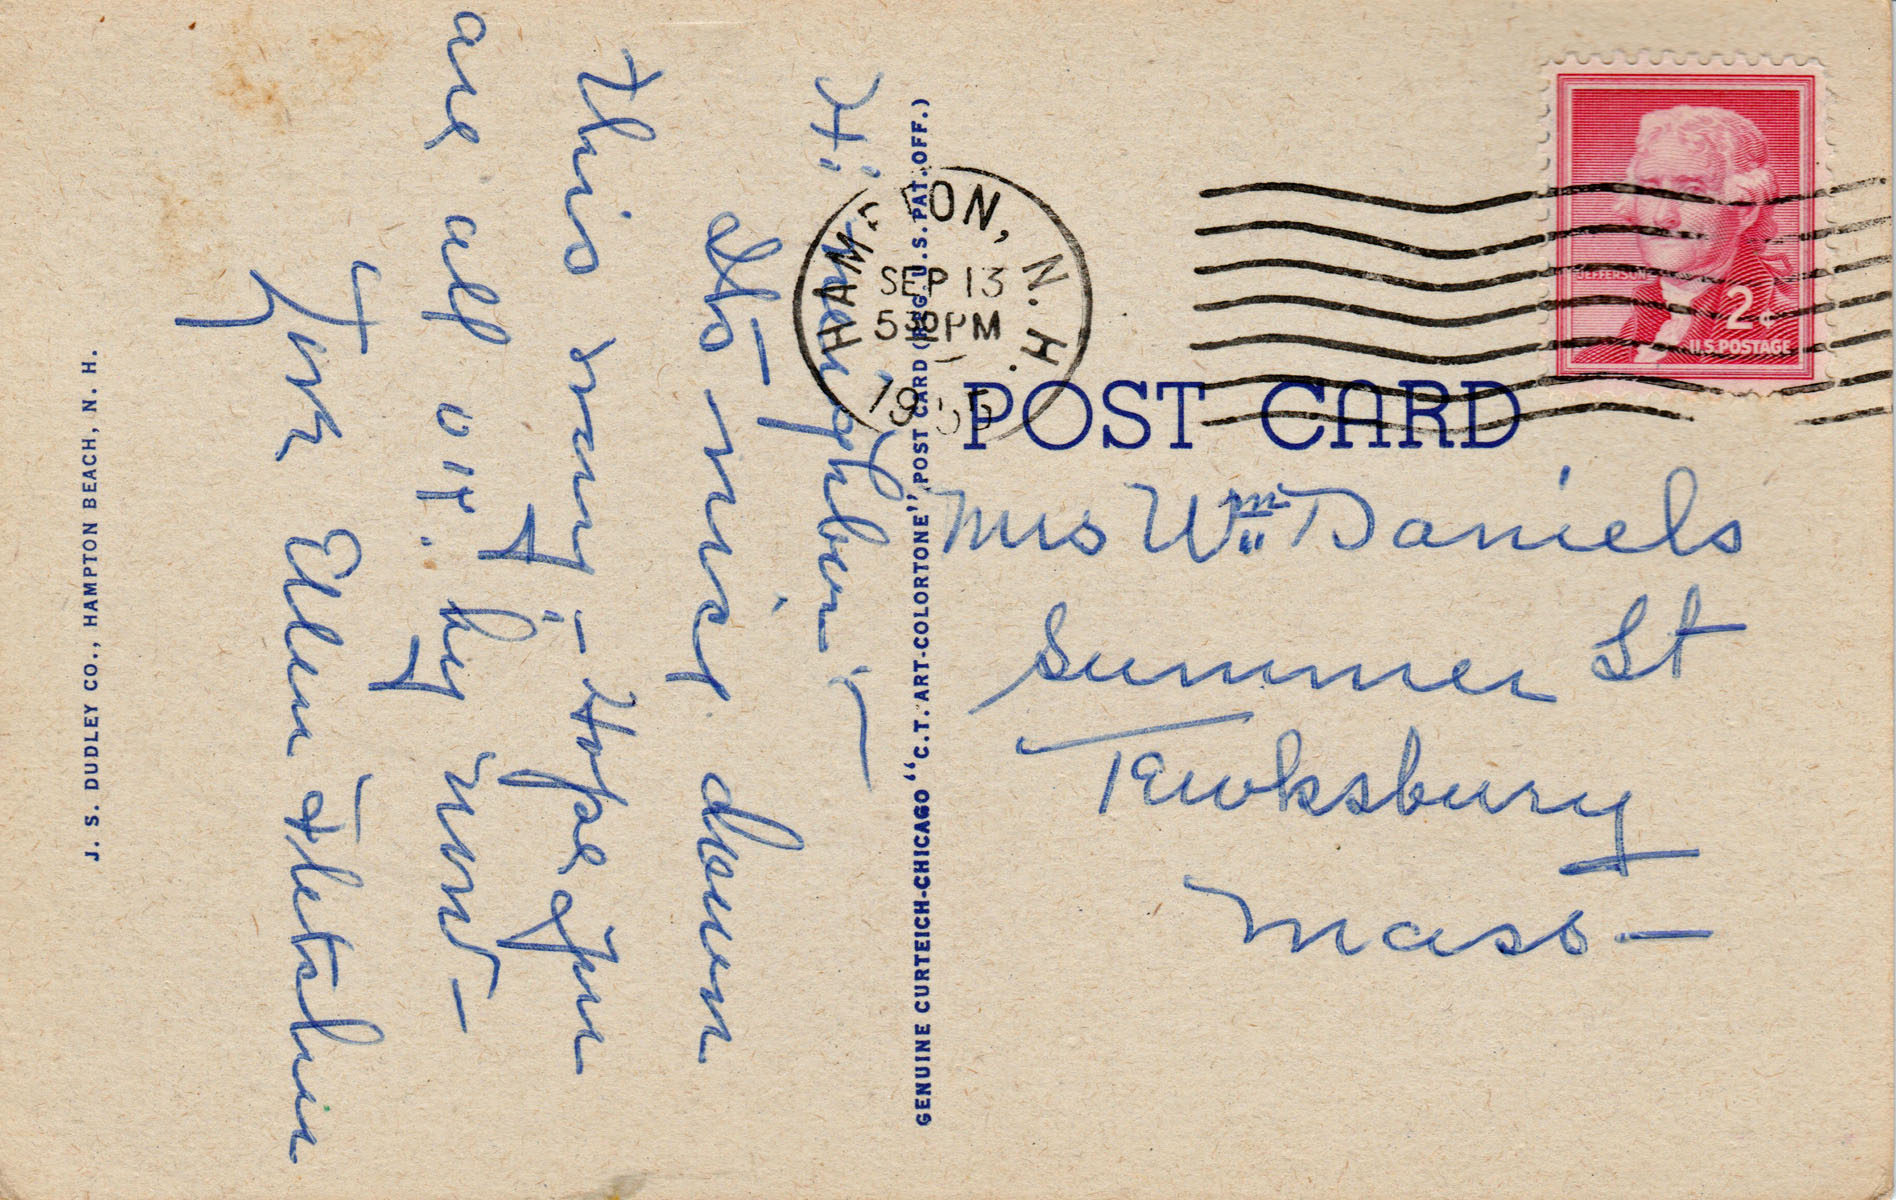 Hi neighbor! —
It's nice down
this way! – Hope you
are all OK. by now –
Joe Ellen &
J. S. DUDLEY CO., HAMPTON BEACH, N. H.
GENUINE CURTEICH-CHICAGO "C.T. ART-COLORTONE" POST CARD (REG. U.S. PAT. OFF.)
HAMPTON, N. H.
SEP 13
530 PM
1955
JEFFERSON
2¢
U.S. POSTAGE
POST CARD
Mrs Wm Daniels
Summer St
Tewksbury
Mass –